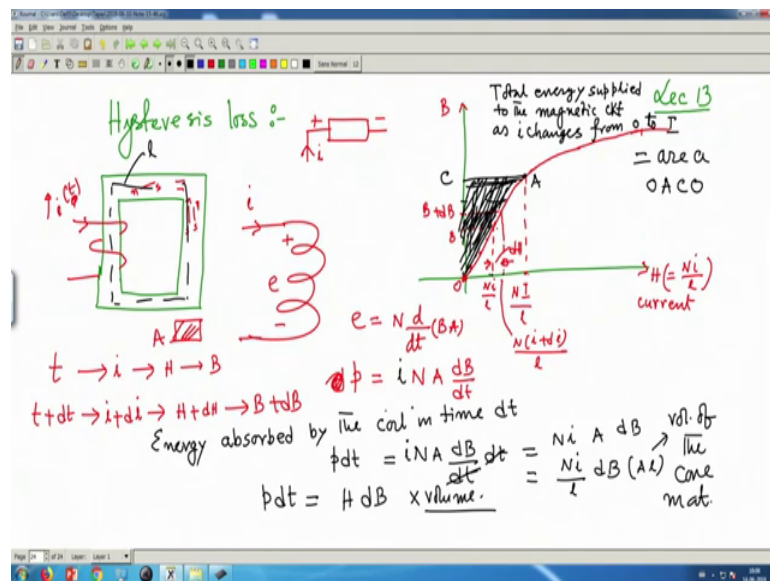 File Edit View Journal Tools Options Help
Sans Normal 12
Hysteresis loss :-
Lec 13
Total energy supplied
to The magnetic ckt
as i changes from 0 to I
= area
OACO
l
i(t)
A
+ -
i
i
+
e
-
B
C
A
B+dB
B
O
dB
Ni/l
NI/l
N(i+di)/l
H(= Ni/l)
current
e = N d/dt (BA)
t → i → H → B
p = i N A dB/dt
t+dt → i+di → H+dH → B+dB
Energy absorbed by The coil in time dt
pdt = iNA dB/dt dt = Ni A dB
= Ni/l dB (Al)
vol. of
The
core
mat.
pdt = H dB × volume.
Page 24 of 24 Layer: Layer 1